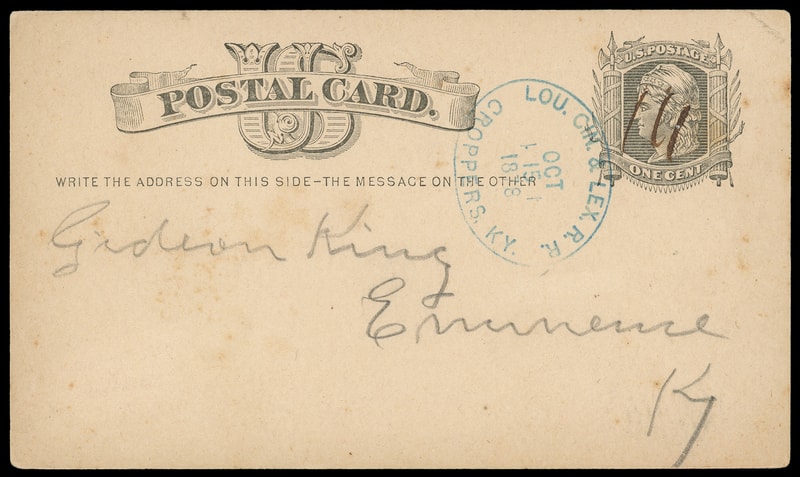 US
POSTAL CARD.
U.S. POSTAGE
ONE CENT
LOU. CIN. & LEX. R. R.
OCT
15
CROPPERS, KY.
WRITE THE ADDRESS ON THIS SIDE – THE MESSAGE ON THE OTHER
Gideon King
Eminence
Ky